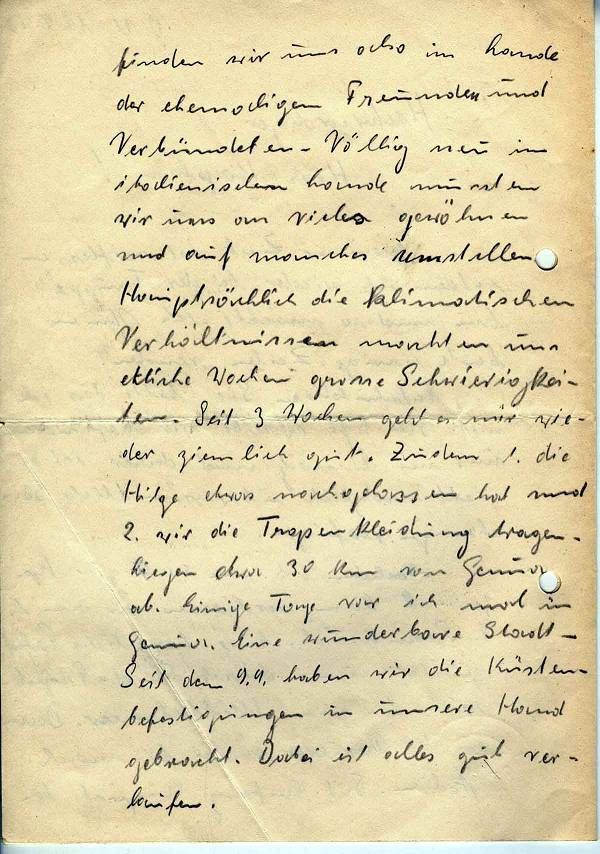 finden wir uns also im Lande
der ehemaligen Freunden und
Verbündeten. Völlig neu im
italienischen Lande mussten
wir uns an vieles gewöhnen
und auf manches umstellen
Hauptsächlich die klimatischen
Verhältnissen machten uns
etliche Wochen grosse Schwierigkei-
ten. Seit 3 Wochen geht es mir wie-
der ziemlich gut. Zudem 1. die
Hitze etwas nachgelassen hat und
2. wir die Tropenkleidung tragen.
Liegen etwa 30 km von Genua
ab. Einige Tage war ich mal in
Genua. Eine wunderbare Stadt.
Seit dem 9.9. haben wir die Küsten-
befestigungen in unsere Hand
gebracht. Dabei ist alles gut ver-
laufen.